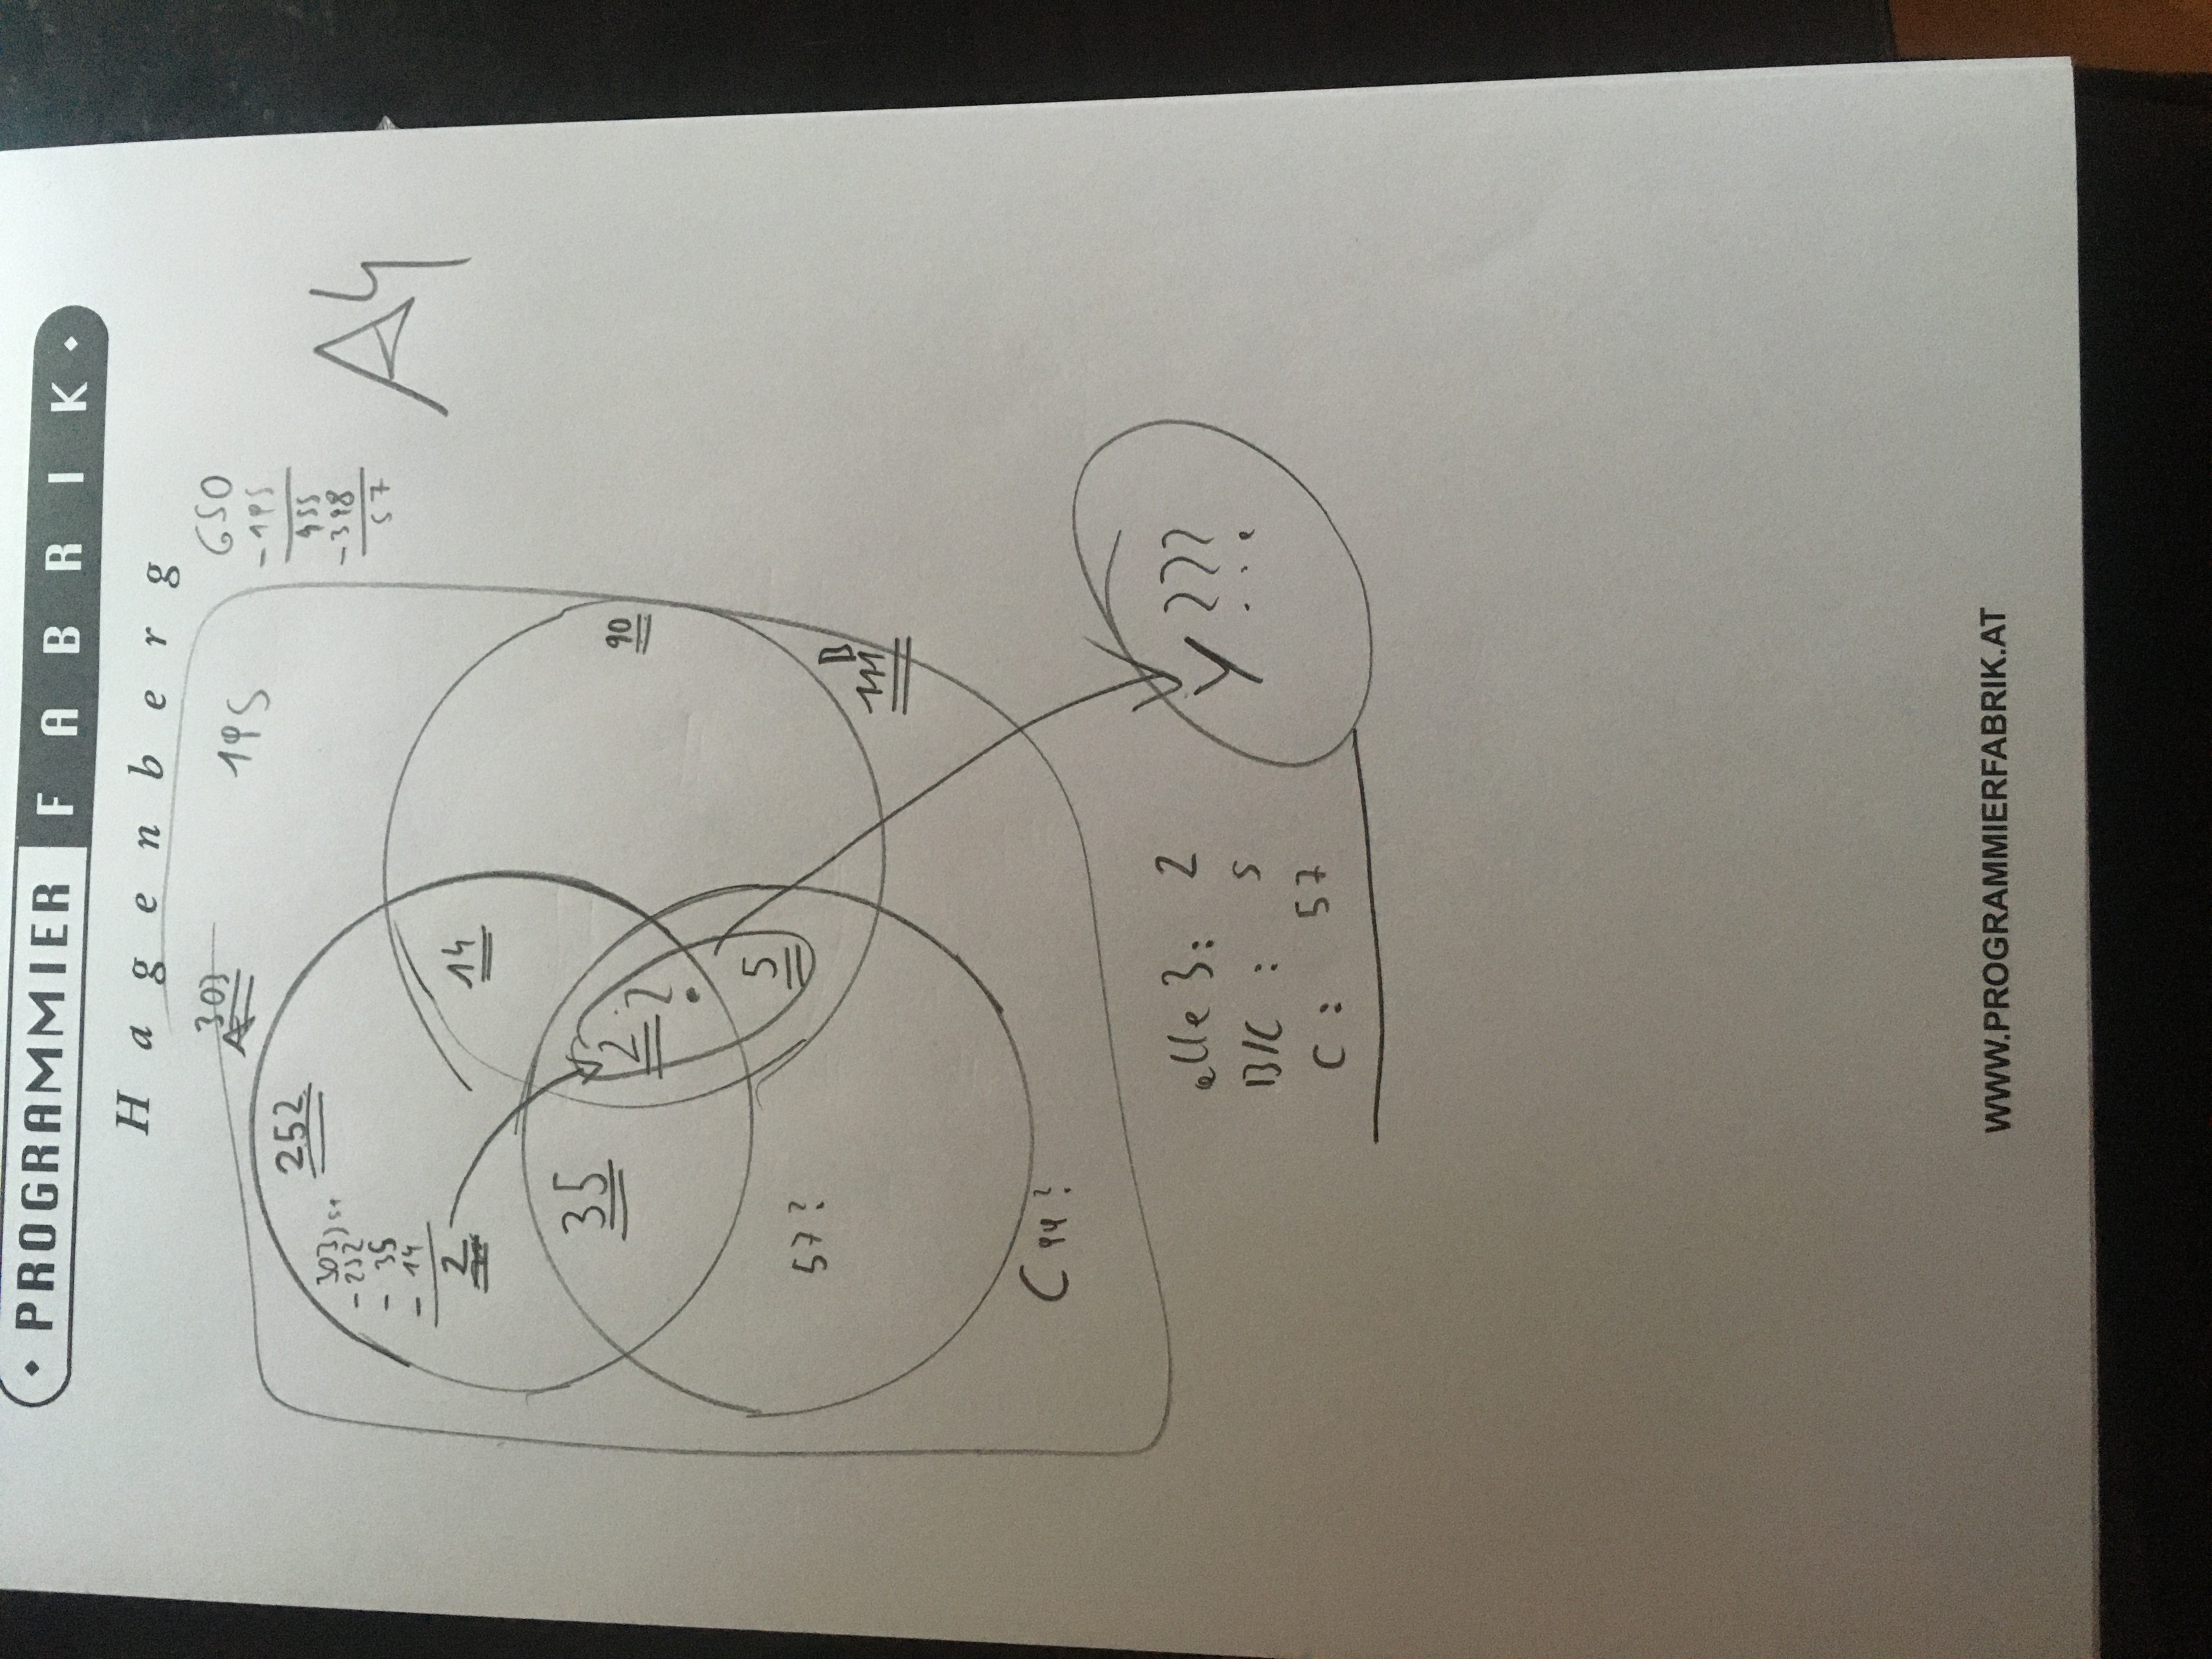 • PROGRAMMIER FABRIK •
Hagenberg
303
A
195
650
-195
455
-398
57
A4
252
303) 51
-252
- 35
- 14
2
14
35
2 ?
90
5
57?
B
111
C 99?
alle 3: 2
B/C : 5
C : 57
Y ???
WWW.PROGRAMMIERFABRIK.AT